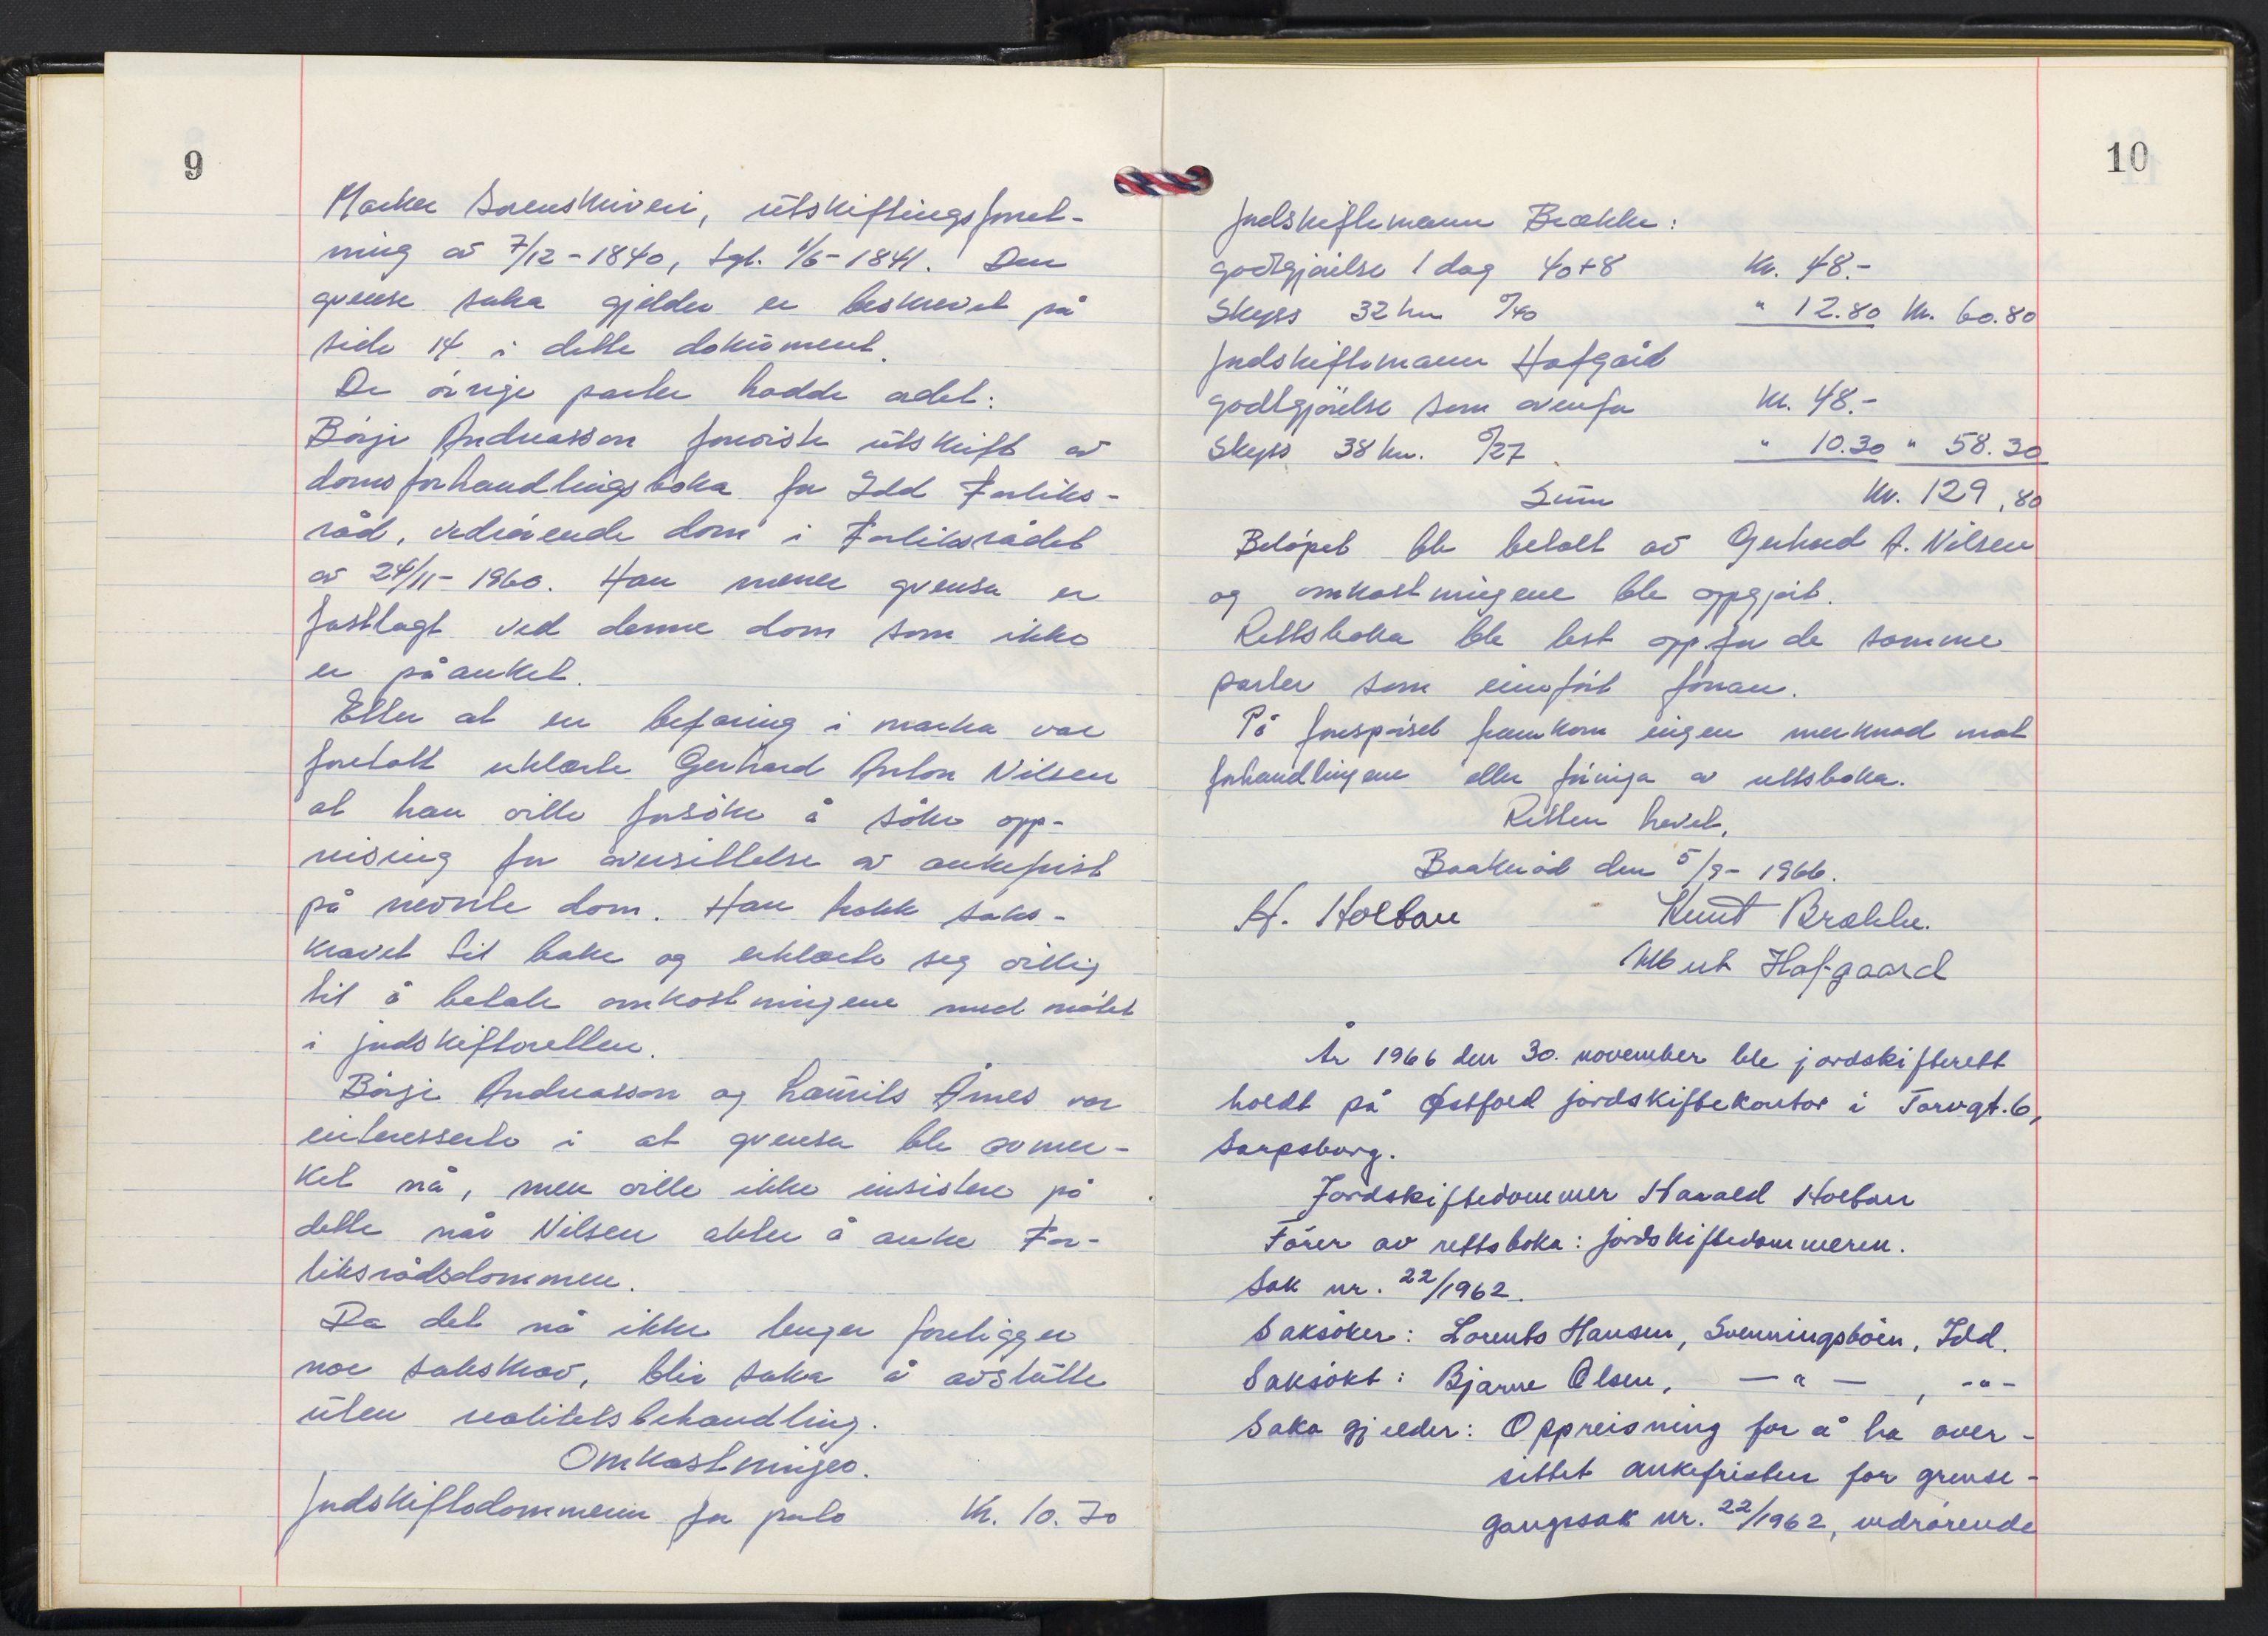 9
Marker Sorenskriveri, utskiftingsforret-
ning av 7/12-1840, tgl. 1/6-1841. Den
grense saka gjelder er beskrevet på
side 14 i dette dokument.
De øvrige parter hadde ordet:
Börje Andreasson foreviste utskrift av
domsforhandlingsboka for Idd Forliks-
råd, vedrørende dom i Forliksrådet
av 24/11-1960. Han mener grensa er
fastlagt ved denne dom som ikke
er påanket.
Etter at en befaring i marka var
foretatt erklærte Gerhard Anton Nilsen
at han ville forsöke å söke opp-
reising for oversittelse av ankefrist
på nevnte dom. Han trakk saks-
kravet til bake og erklærte seg villig
til å betale omkostningene med møtet
i jordskifteretten.
Börje Andreasson og Laurits Åmes var
interesserte i at grensa ble avmer-
ket nå, men ville ikke insistere på
dette når Nilsen akter å anke For-
liksrådsdommen.
Da det nå ikke lenger foreligger
noe sakskrav, blir saka å avslutte
uten realitetsbehandling.
Omkostninger.
Jordskiftedommeren for porto Kr. 10.70
10
Jordskiftemann Brække:
godtgjørelse 1 dag 40+8 Kr. 48.-
Skyss 32 km 0/40 " 12.80 Kr. 60.80
Jordskiftemann Hafgård
godtgjörelse som ovenfor Kr. 48.-
Skyss 38 km. 0/27 " 10.30 " 58.30
Sum Kr. 129,80
Beløpet ble betalt av Gerhard A. Nilsen
og omkostningene ble oppgjort.
Rettsboka ble lest opp for de samme
parter som innført foran.
På forespørsel framkom ingen merknad mot
forhandlingene eller føringa av rettsboka.
Retten hevet,
Bakkerød den 5/9-1966.
H. Holtan Knut Brække.
Albert Hafgaard
År 1966 den 30. november ble jordskifterett
holdt på Østfold jordskiftekontor i Torvgt. 6,
Sarpsborg.
Jordskiftedommer Harald Holtan
Fører av rettsboka: jordskiftedommeren.
Sak nr. 22/1962.
Saksöker: Lorents Hansen, Svenningsböen, Idd.
Saksökt: Bjarne Olsen, — " — , -"-
Saka gjelder: Oppreisning for å ha over-
sittet ankefristen for grense-
gangssak nr. 22/1962, vedrørende